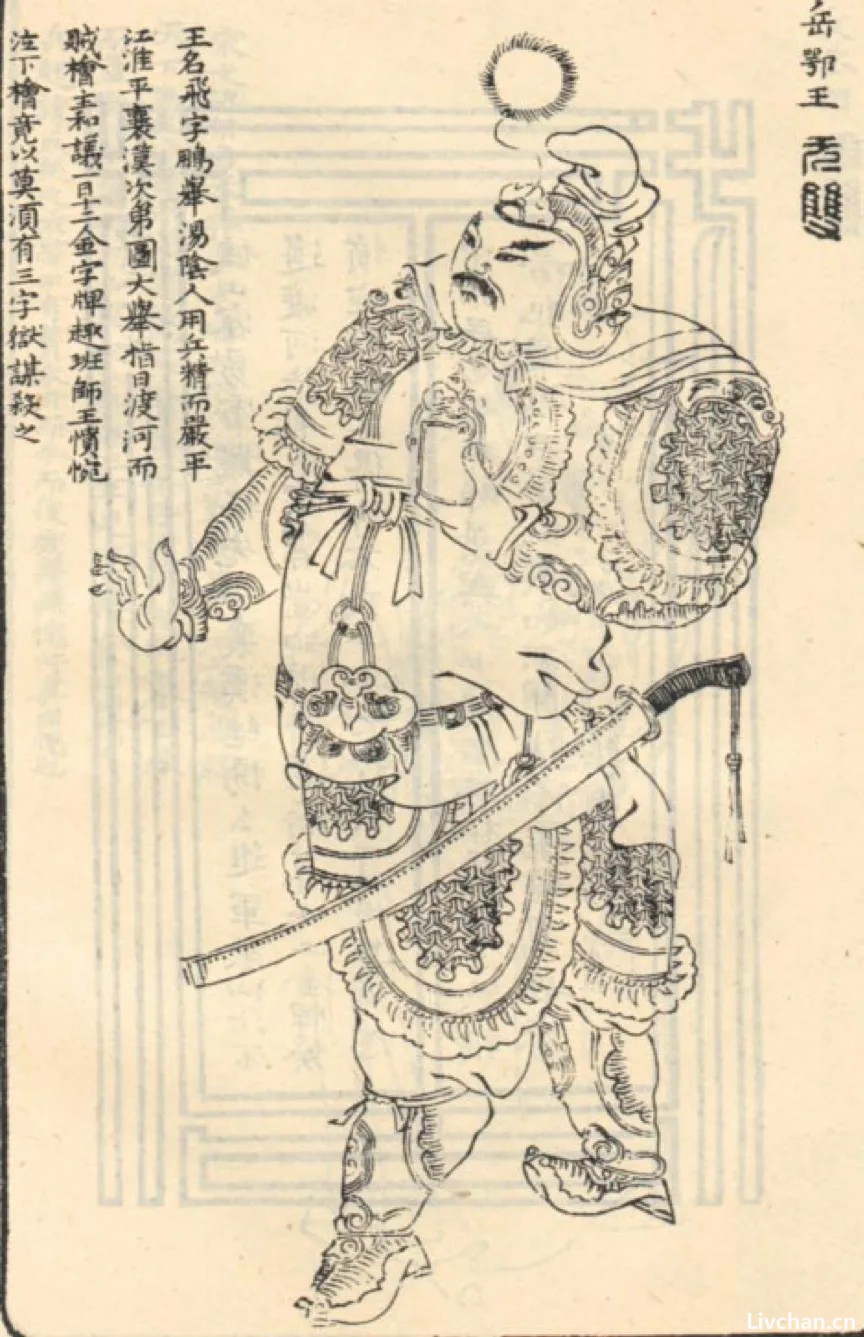 岳鄂王 无雙
王名飛字鵬舉湯陰人用兵精而嚴平
江淮平襄漢次第圖大舉指日渡河而
賊檜主和議一日十二金字牌趣班師王憤惋
泣下檜竟以莫須有三字獄謀殺之
Livchan.cn